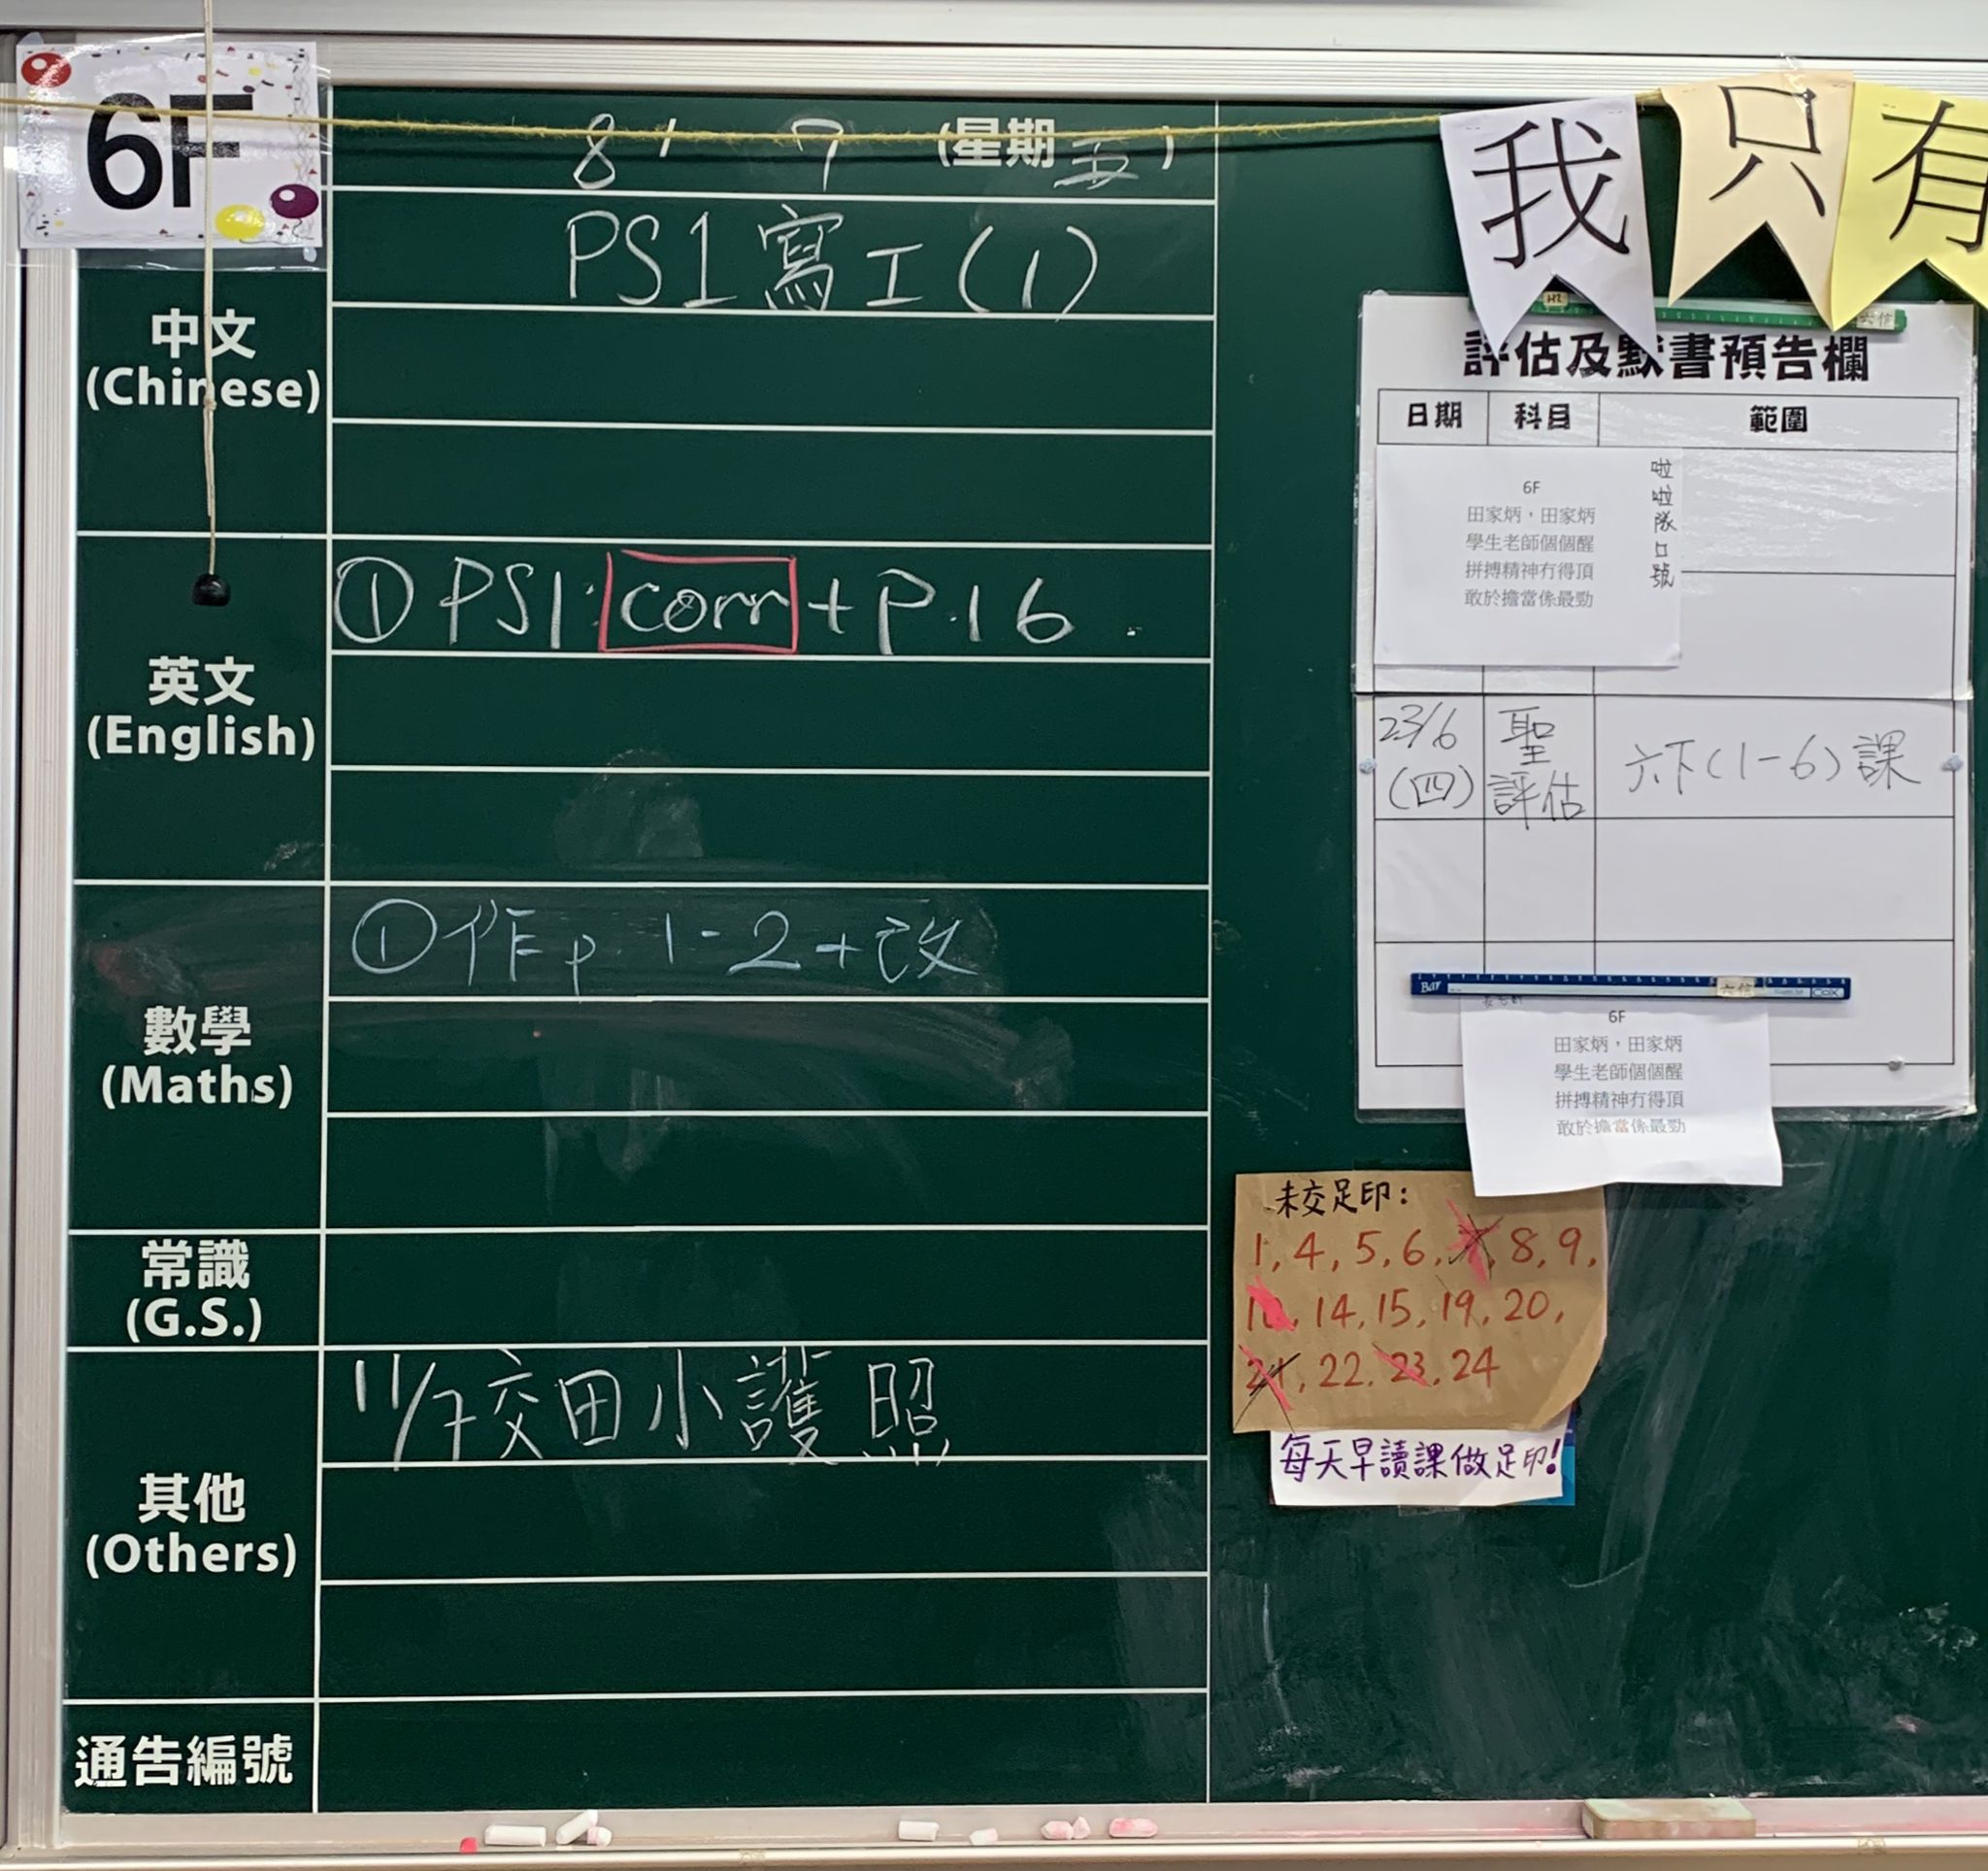 6F
8 / 7 (星期五)
中文
(Chinese)
PS1 寫工(1)
英文
(English)
① PS1: corr + P.16.
數學
(Maths)
① 作 p. 1-2 + 改
常識
(G.S.)
其他
(Others)
11/7 交田小護照
通告編號
我只有
評估及默書預告欄
日期 科目 範圍
啦啦隊口號
6F
田家炳，田家炳
學生老師個個醒
拼搏精神冇得頂
敢於擔當係最勁
23/6 (四) 聖評估 六下(1-6)課
Bar 六信 COX
6F
田家炳，田家炳
學生老師個個醒
拼搏精神冇得頂
敢於擔當係最勁
未交足印：
1, 4, 5, 6, 7, 8, 9,
14, 15, 19, 20,
21, 22, 23, 24
每天早讀課做足印!